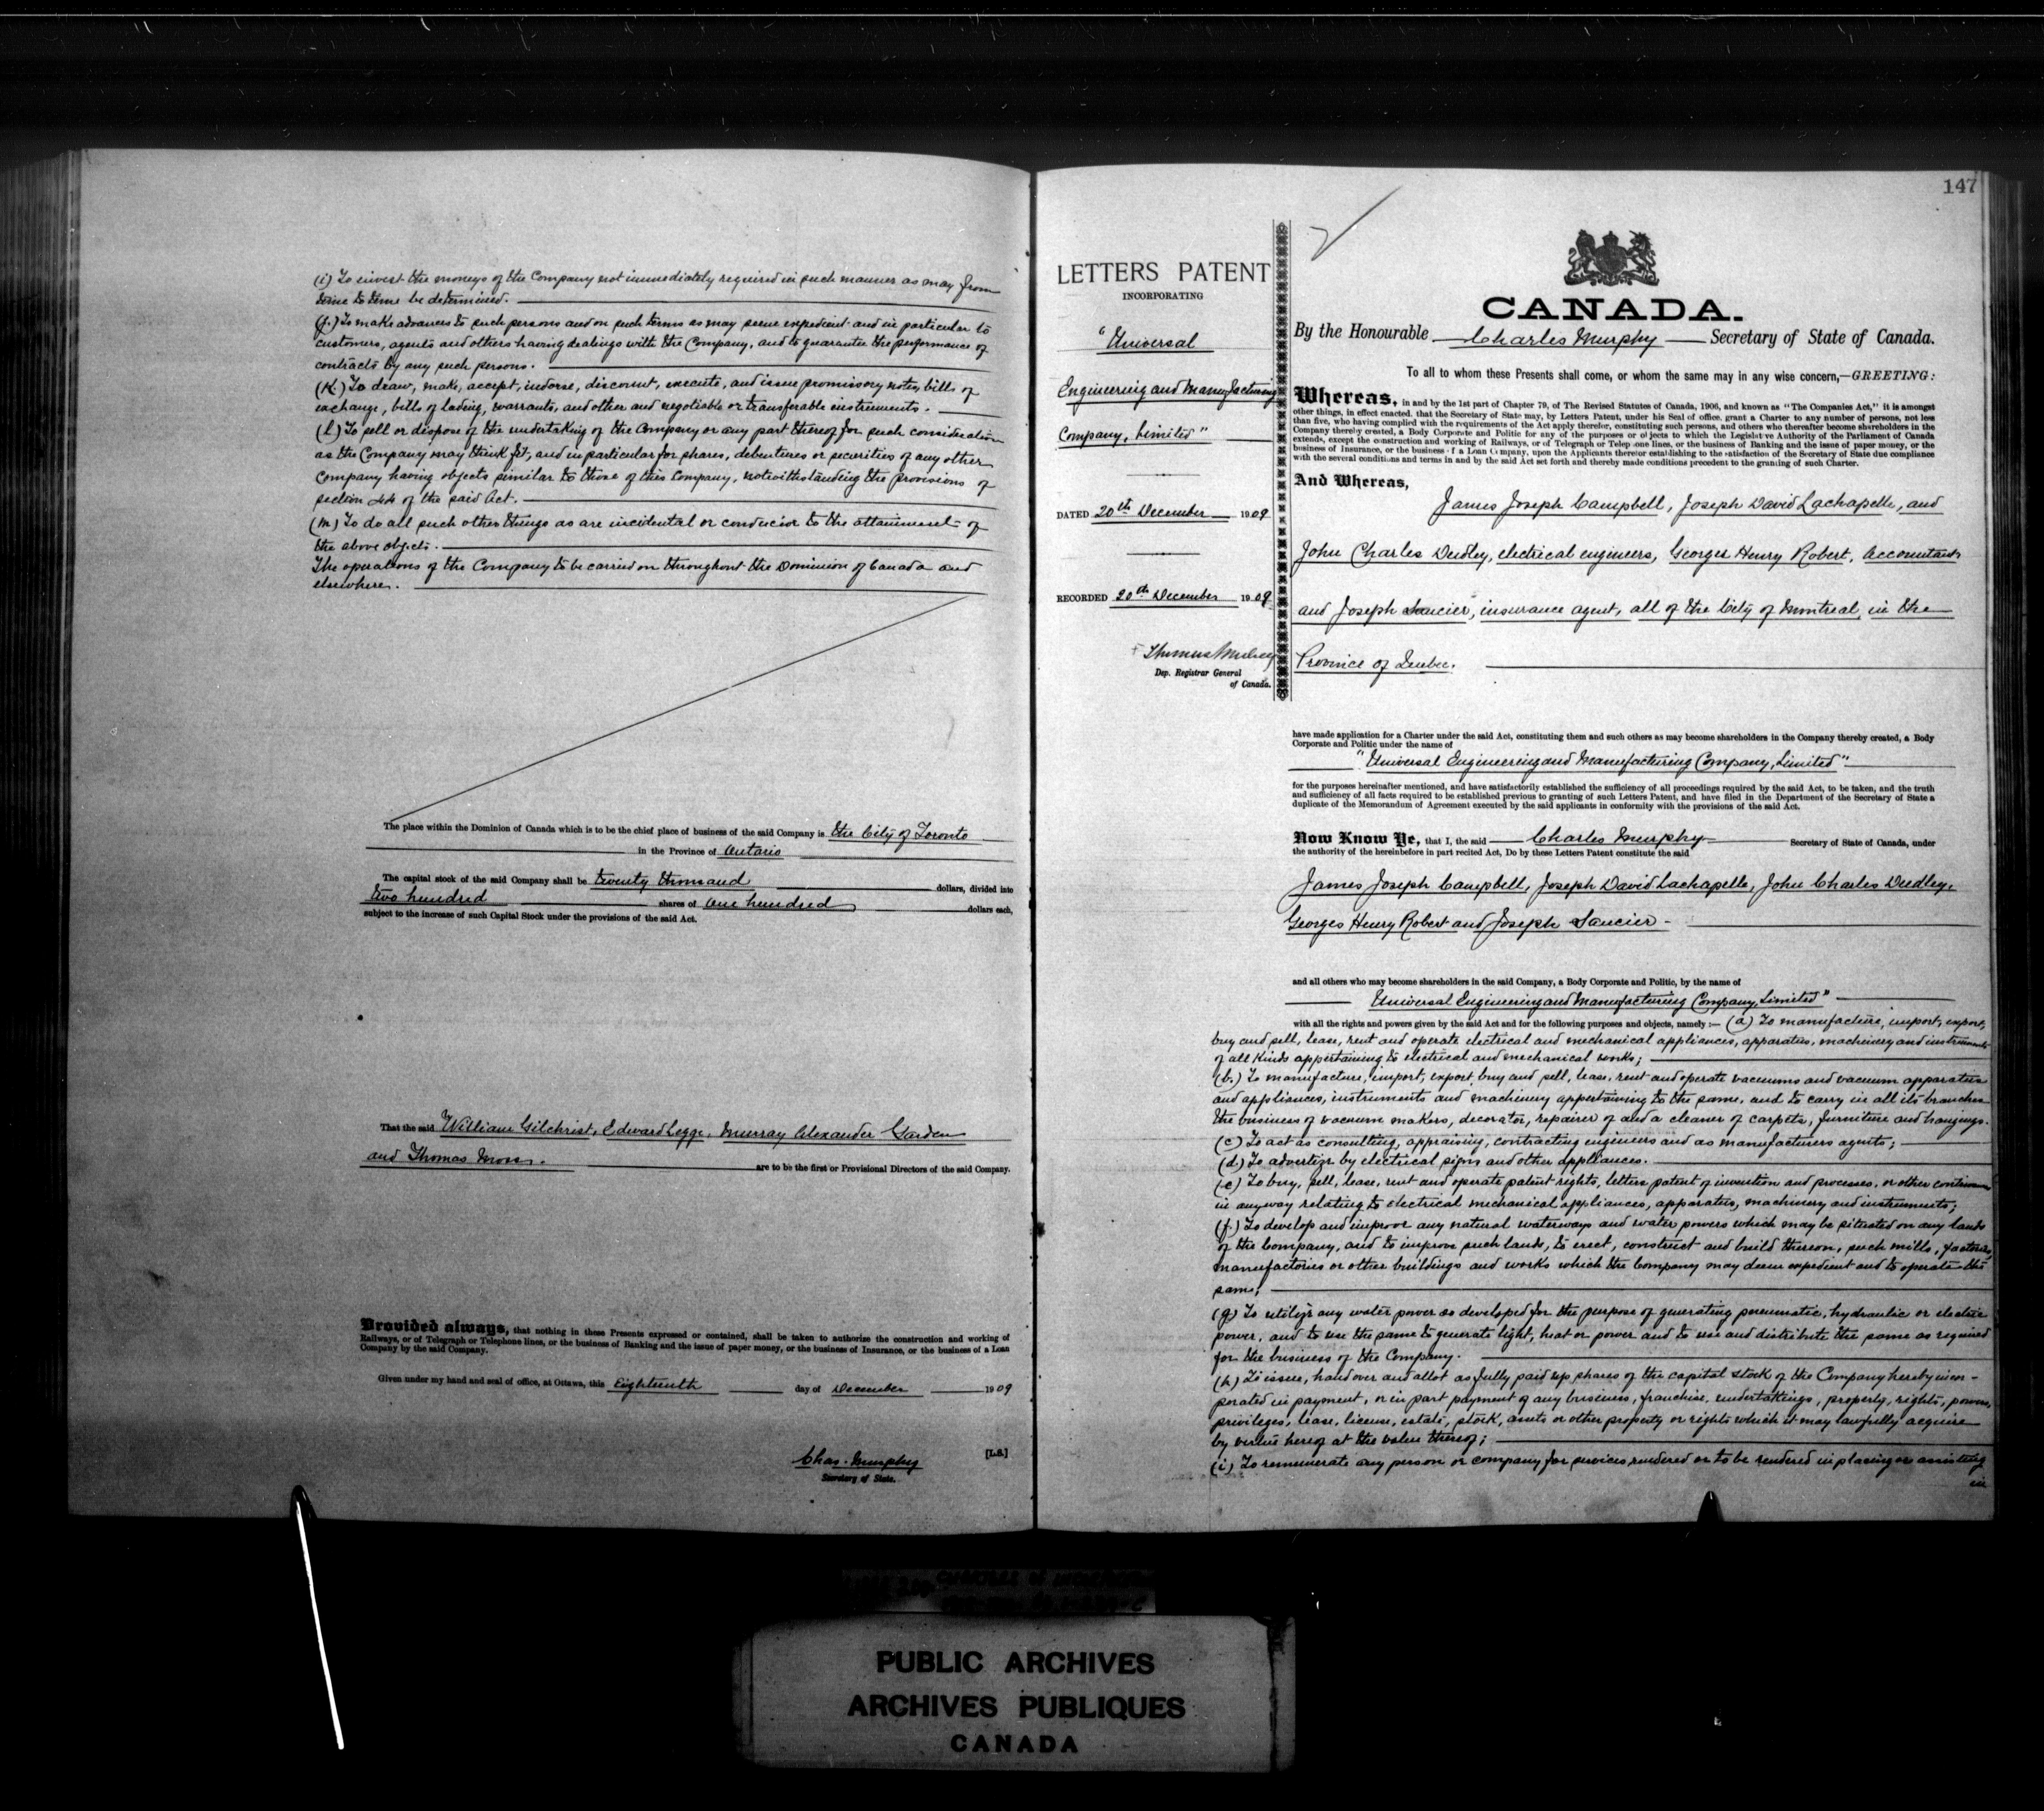 (i) To invest the moneys of the Company not immediately required in such manner as may from
time to time be determined.
(j.) To make advances to such persons and on such terms as may seem expedient and in particular to
customers, agents and others having dealings with the Company, and to guarantee the performance of
contracts by any such persons.
(K.) To draw, make, accept, indorse, discount, execute, and issue promissory notes, bills of
exchange, bills of lading, warrants, and other and negotiable or transferable instruments.
(l.) To sell or dispose of the undertaking of the Company or any part thereof for such consideration
as the Company may think fit, and in particular for shares, debentures or securities of any other
company having objects similar to those of this Company, notwithstanding the provisions of
section 44 of the said Act.
(m) To do all such other things as are incidental or conducive to the attainment of
the above objects.
The operations of the Company to be carried on throughout the Dominion of Canada and
elsewhere.
The place within the Dominion of Canada which is to be the chief place of business of the said Company is the City of Toronto
in the Province of Ontario
The capital stock of the said Company shall be twenty thousand dollars, divided into
two hundred shares of One hundred dollars each,
subject to the increase of such Capital Stock under the provisions of the said Act.
That the said William Gilchrist, Edward Legge, Murray Alexander Garden
and Thomas Moss. are to be the first or Provisional Directors of the said Company.
Provided always, that nothing in these Presents expressed or contained, shall be taken to authorize the construction and working of
Railways, or of Telegraph or Telephone lines, or the business of Banking and the issue of paper money, or the business of Insurance, or the business of a Loan
Company by the said Company.
Given under my hand and seal of office, at Ottawa, this Eighteenth day of December 1909
Chas. Murphy [L.S.]
Secretary of State.
147
LETTERS PATENT
INCORPORATING
"Universal
Engineering and Manufacturing
Company, Limited"
DATED 20th December 1909
RECORDED 20th December 1909
Thomas Mulvey
Dep. Registrar General
of Canada.
CANADA.
By the Honourable Charles Murphy Secretary of State of Canada.
To all to whom these Presents shall come, or whom the same may in any wise concern,—GREETING:
Whereas, in and by the 1st part of Chapter 79, of The Revised Statutes of Canada, 1906, and known as "The Companies Act," it is amongst
other things, in effect enacted, that the Secretary of State may, by Letters Patent, under his Seal of office, grant a Charter to any number of persons, not less
than five, who having complied with the requirements of the Act apply therefor, constituting such persons, and others who thereafter become shareholders in the
Company thereby created, a Body Corporate and Politic for any of the purposes or objects to which the Legislative Authority of the Parliament of Canada
extends, except the construction and working of Railways, or of Telegraph or Telephone lines, or the business of Banking and the issue of paper money, or the
business of Insurance, or the business of a Loan Company, upon the Applicants therefor establishing to the satisfaction of the Secretary of State due compliance
with the several conditions and terms in and by the said Act set forth and thereby made conditions precedent to the granting of such Charter.
And Whereas,
James Joseph Campbell, Joseph David Lachapelle, and
John Charles Dudley, electrical engineers, Georges Henry Robert, accountant
and Joseph Saucier, insurance agent, all of the City of Montreal, in the
Province of Quebec.
have made application for a Charter under the said Act, constituting them and such others as may become shareholders in the Company thereby created, a Body
Corporate and Politic under the name of
"Universal Engineering and Manufacturing Company, Limited"
for the purposes hereinafter mentioned, and have satisfactorily established the sufficiency of all proceedings required by the said Act, to be taken, and the truth
and sufficiency of all facts required to be established previous to granting of such Letters Patent, and have filed in the Department of the Secretary of State a
duplicate of the Memorandum of Agreement executed by the said applicants in conformity with the provisions of the said Act.
Now Know Ye, that I, the said Charles Murphy Secretary of State of Canada, under
the authority of the hereinbefore in part recited Act, Do by these Letters Patent constitute the said
James Joseph Campbell, Joseph David Lachapelle, John Charles Dudley,
Georges Henry Robert and Joseph Saucier
and all others who may become shareholders in the said Company, a Body Corporate and Politic, by the name of
Universal Engineering and Manufacturing Company, Limited"
with all the rights and powers given by the said Act and for the following purposes and objects, namely :— (a) To manufacture, import, export,
buy and sell, lease, rent and operate electrical and mechanical appliances, apparatus, machinery and instruments
of all kinds appertaining to electrical and mechanical works;
(b.) To manufacture, import, export, buy and sell, lease, rent and operate vacuums and vacuum apparatus
and appliances, instruments and machinery appertaining to the same, and to carry in all its branches
the business of vacuum makers, decorator, repairer of and a cleaner of carpets, furniture and hangings.
(c) To act as consulting, appraising, contracting engineers and as manufacturers agents;
(d.) To advertize by electrical signs and other appliances.
(e) To buy, sell, lease, rent and operate patent rights, letters patent of invention and processes, or other
in anyway relating to electrical mechanical appliances, apparatus, machinery and instruments;
(f.) To develop and improve any natural waterways and water powers which may be situated on any lands
of the Company, and to improve such lands, to erect, construct and build thereon, such mills, factories,
manufactories or other buildings and works which the Company may deem expedient and to operate the
same;
(g) To utilize any water power so developed for the purpose of generating pneumatic, hydraulic or electric
power, and to use the same to generate light, heat or power and to use and distribute the same as required
for the business of the Company.
(h.) To issue, hand over and allot as fully paid up shares of the capital stock of the Company hereby incor-
porated in payment, or in part payment of any business, franchise, undertakings, property, rights, powers,
privileges, lease, license, estate, stock, assets or other property or rights which it may lawfully acquire
by virtue hereof at the value thereof;
(i) To remunerate any person or company for services rendered or to be rendered in placing or assisting
in
PUBLIC ARCHIVES
ARCHIVES PUBLIQUES
CANADA